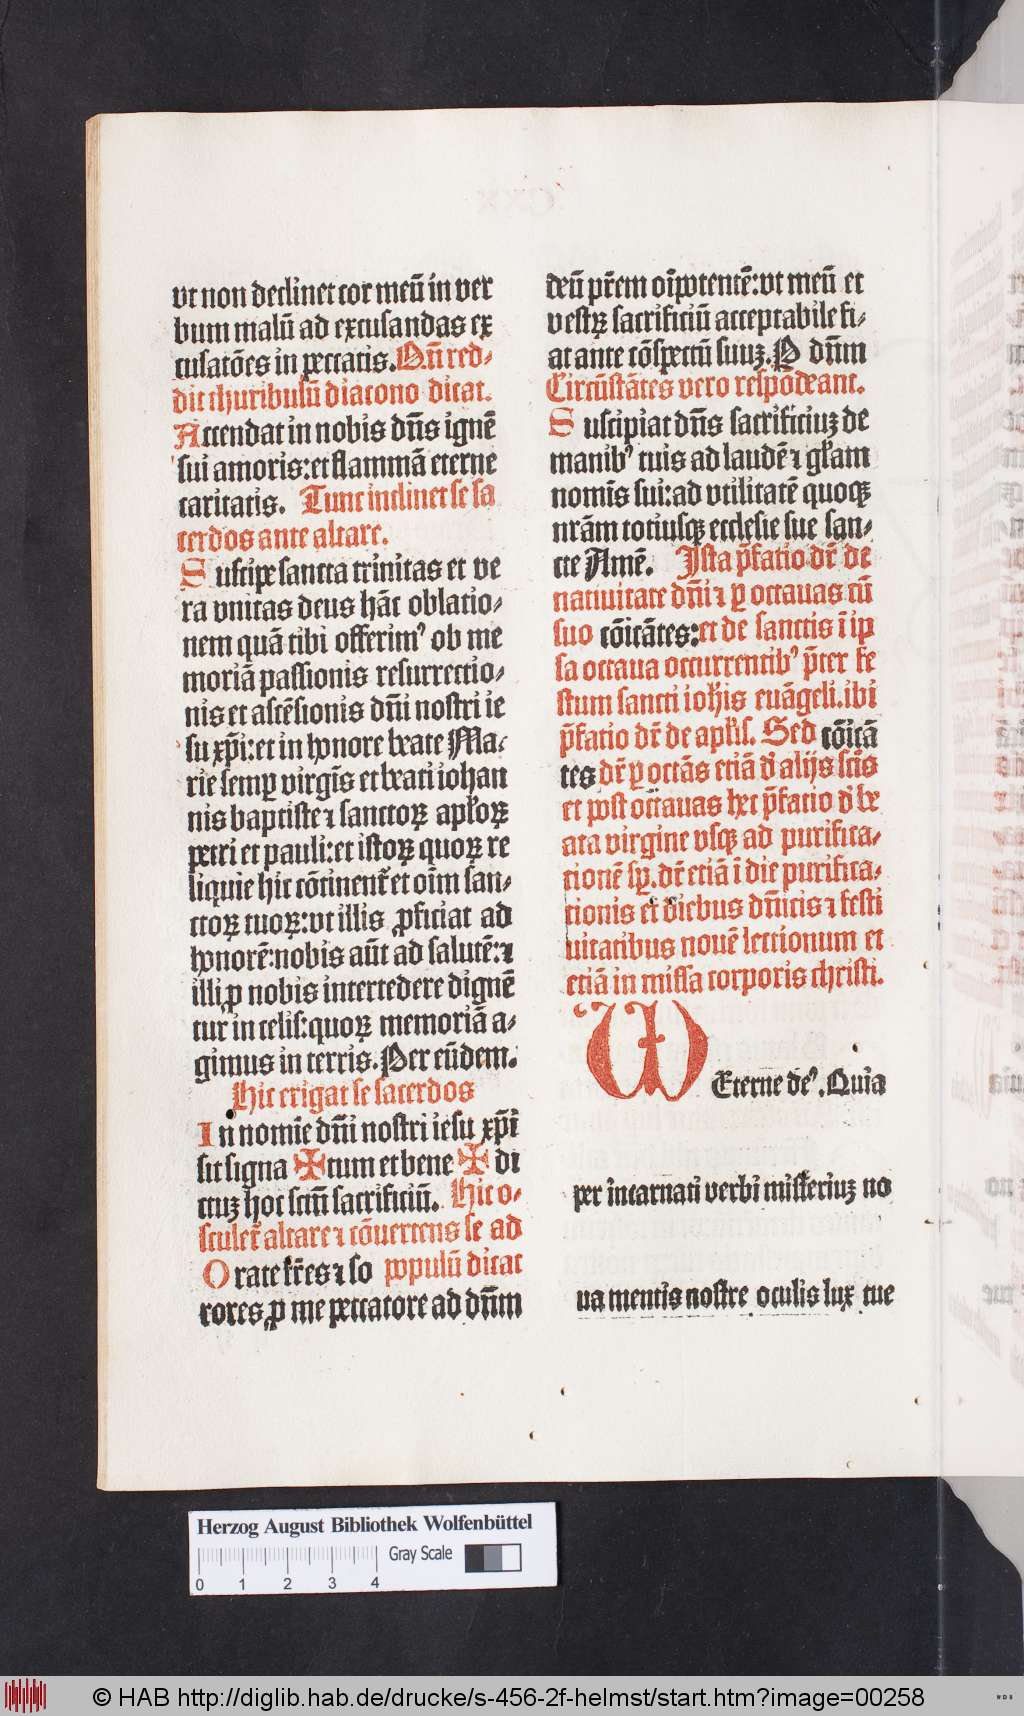 vt non declinet cor meū in ver
bum malū ad excusandas ex
cusatōes in peccatis. Qn̄ red⸗
dit thuribulū diacono dicat.
Accendat in nobis dn̄s ignē
sui amoris: et flammā eterne
caritatis. Tunc inclinet se sa
cerdos ante altare.
Suscipe sancta trinitas et ve
ra vnitas deus hāc oblatio⸗
nem quā tibi offerimꝰ ob me
moriā passionis resurrectio⸗
nis et ascēsionis dn̄i nostri ie
su xp̄i: et in honore beate Ma⸗
rie semꝑ virgīs et beati iohan
nis baptiste ⁊ sanctoꝝ apl̓oꝝ
petri et pauli: et istoꝝ quoꝝ re
liquie hic cōtinent᷑ et oīm san⸗
ctoꝝ tuoꝝ: vt illis ꝓficiat ad
honorē: nobis aūt ad salutē: ⁊
illi ꝓ nobis intercedere dignē
tur in celis: quoꝝ memoriā a⸗
gimus in terris. Per eūdem.
Hic erigat se sacerdos
In nomīe dn̄i nostri iesu xp̄i
sit signa ✠ tum et bene ✠ di
ctuꝫ hoc sctm̄ sacrificiū. Hic o⸗
sculet᷑ altare ⁊ cōuertens se ad
Orate fr̄es ⁊ so populū dicat
rores ꝓ me peccatore ad dn̄m
deū pr̄em oīpotentē: vt meū et
vestꝝ sacrificiū acceptabile fi⸗
at ante cōspectū suuꝫ. P dn̄m
Circūstātes vero respōdeant.
Suscipiat dn̄s sacrificiuꝫ de
manibꝰ tuis ad laudē ⁊ gl̓am
nomīs sui: ad vtilitatē quoqꝫ
nrām totiusqꝫ ecclesie sue san⸗
cte Amē. Ista p̄fatio dr̄ de
natiuitate dn̄i ⁊ ꝑ octauas cū
suo cōicātes: et de sanctis ī ip
sa octaua occurrentibꝰ p̄ter fe
stum sancti ioh̄is euāgeli. ibi
p̄fatio dr̄ de apl̓is. Sed cōicā
tes dr̄ ꝑ octās etiā đ alijs sctīs
et post octauas hec p̄fatio đ be
ata virgine vsqꝫ ad purifica⸗
tionē sꝑ. dr̄ etiā ī die purifica⸗
tionis et diebus dn̄icis ⁊ festi
uitatibus nouē lectionum et
etiā in missa corporis christi.
W Eterne deꝰ. Quia
per incarnati verbi misteriuꝫ no
ua mentis nostre oculis lux tue
Herzog August Bibliothek Wolfenbüttel
Gray Scale
0 1 2 3 4
© HAB http://diglib.hab.de/drucke/s-456-2f-helmst/start.htm?image=00258